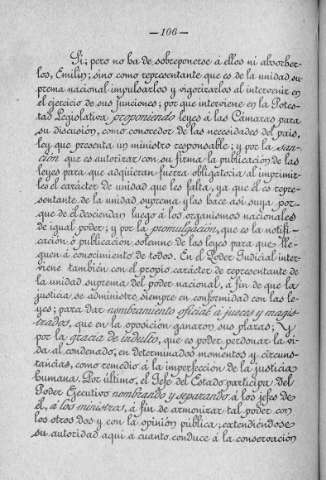 —106—
Si; pero no ha de sobreponerse á ellos ni absorber-
los, Emilin; sino como representante que es de la unidad su-
prema nacional impulsarlos y vigorizarlos al intervenir en
el ejercicio de sus funciones; por que interviene en la Potes-
tad Legislativa proponiendo leyes á las Cámaras para
su discusión, como conocedor de las necesidades del pais,
ley que presenta un ministro responsable; y por la san-
ción que es autorizar con su firma la publicación de las
leyes para que adquieran fuerza obligatoria al imprimir-
les el carácter de unidad que les falta, ya que él es repre-
sentante de la unidad suprema y las hace asi suya por-
que de él desciendan luego á los organismos nacionales
de igual poder; y por la promulgación, que es la notifi-
cación ó publicación solemne de las leyes para que lle-
guen á conocimiento de todos. En el Poder Judicial inter-
viene también con el propio carácter de representante de
la unidad suprema del poder nacional, á fin de que la
justicia se administre siempre en conformidad con las le-
yes; para dar nombramiento oficial á jueces y magis-
trados, que en la oposición ganaron sus plazas; Y
por la gracia de indulto, que es poder perdonar la vi-
da al condenado, en determinados momentos y circuns-
tancias, como remedio á la imperfección de la justicia
humana. Por último, el Jefe del Estado participa del
Poder Ejecutivo nombrando y separando á los jefes de
él, á los ministros, á fin de armonizar tal poder con
los otros dos y con la opinión pública; extendiéndose
su autoridad aqui á cuanto conduce á la conservación